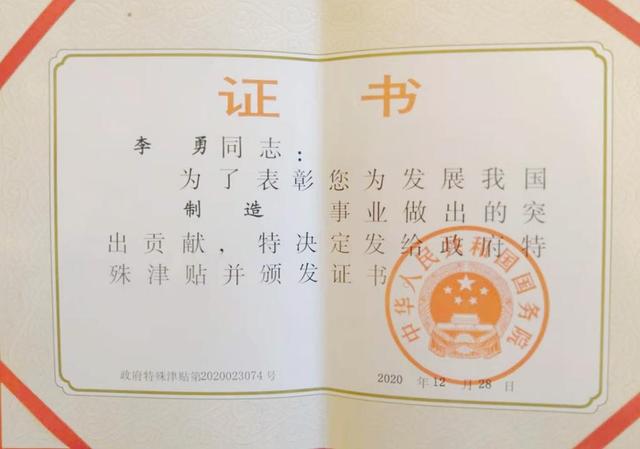 证书
李勇同志：
为了表彰您为发展我国
制造事业做出的突
出贡献，特决定发给政府特
殊津贴并颁发证书
中华人民共和国国务院
政府特殊津贴第2020023074号
2020年12月28日